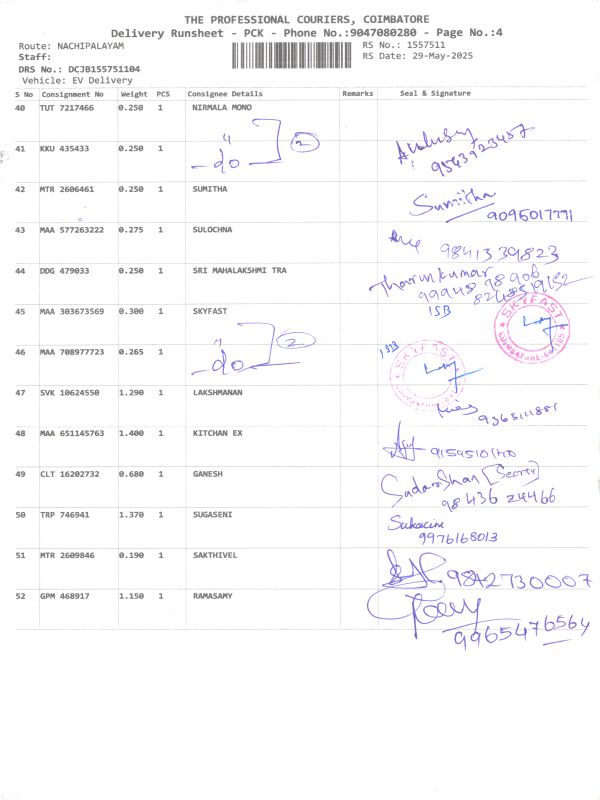 THE PROFESSIONAL COURIERS, COIMBATORE
Delivery Runsheet - PCK - Phone No.:9047080280 - Page No.:4
Route: NACHIPALAYAM RS No.: 1557511
Staff: RS Date: 29-May-2025
DRS No.: DCJB155751104
Vehicle: EV Delivery
S No Consignment No Weight PCS Consignee Details Remarks Seal & Signature
40 TUT 7217466 0.250 1 NIRMALA MONO
41 KKU 435433 0.250 1 " do 2
42 MTR 2606461 0.250 1 SUMITHA Sumitha
9095017771
43 MAA 577263222 0.275 1 SULOCHNA 9841339823
44 DDG 479033 0.250 1 SRI MAHALAKSHMI TRA Tharunkumar
45 MAA 303673569 0.300 1 SKYFAST ISB SKYFAST
46 MAA 708977723 0.265 1 " do 2 ISB SKYFAST
47 SVK 10624550 1.290 1 LAKSHMANAN
48 MAA 651145763 1.400 1 KITCHAN EX
49 CLT 16202732 0.680 1 GANESH
98436 24466
50 TRP 746941 1.370 1 SUGASENI
9976168013
51 MTR 2609846 0.190 1 SAKTHIVEL 9842730007
52 GPM 468917 1.150 1 RAMASAMY
9965476564